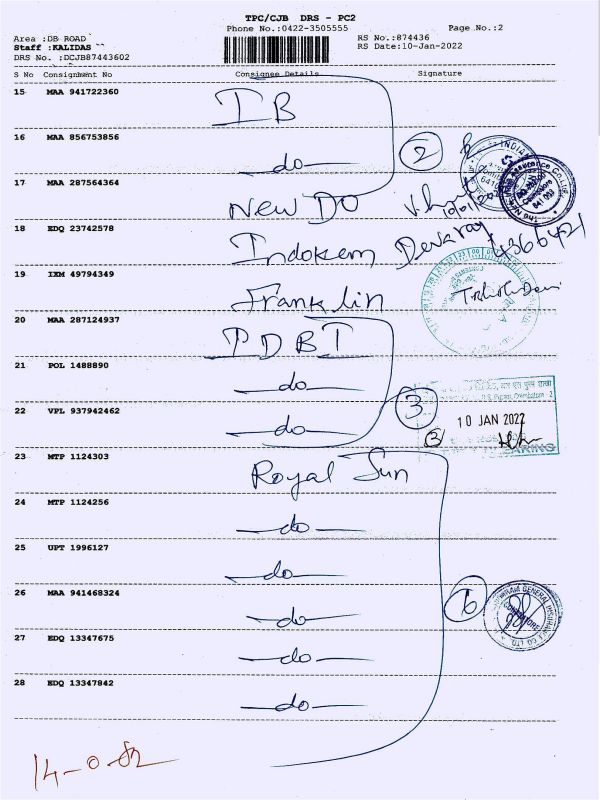 TPC/CJB DRS - PC2
Phone No.:0422-3505555 Page No.:2
Area :DB ROAD RS No.:874436
Staff :KALIDAS RS Date:10-Jan-2022
DRS No. :DCJB87443602
S No Consignment No Consignee Details Signature
15 MAA 941722360 IB
16 MAA 856753856 -do- 2
17 MAA 287564364 New DO
18 EDQ 23742578 Indokem Devaraj
19 IXM 49794349 Franklin
20 MAA 287124937 IDBI
21 POL 1488890 -do-
22 VPL 937942462 -do- 3
10 JAN 2022
23 MTP 1124303 Royal Sun
24 MTP 1124256 -do-
25 UPT 1996127 -do-
26 MAA 941468324 -do- 6
27 EDQ 13347675 -do-
28 EDQ 13347842 -do-
14-0-82